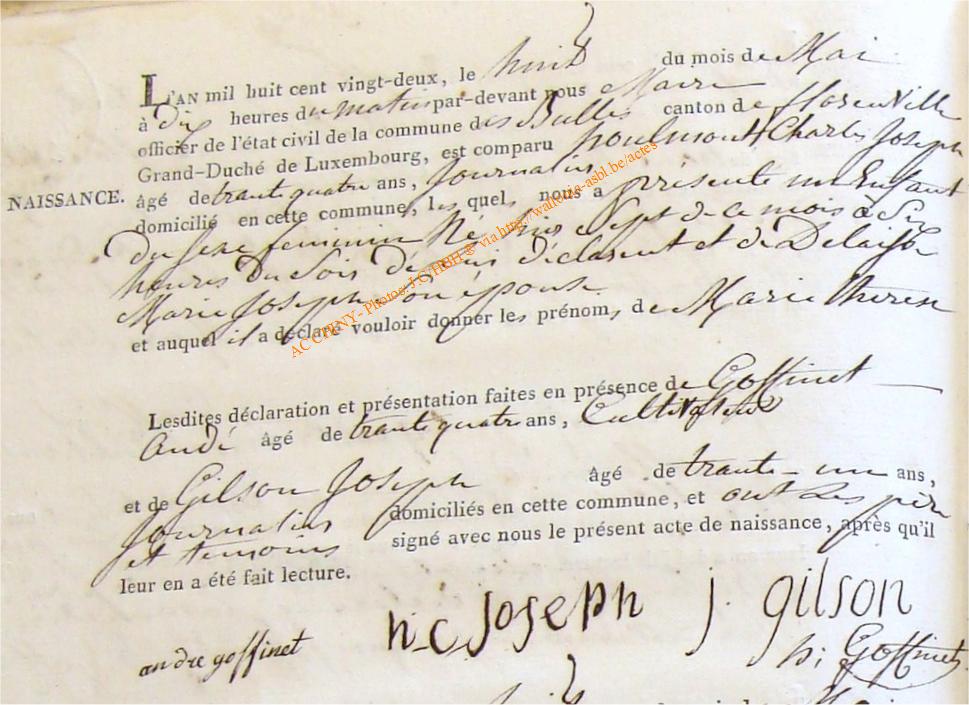 L'AN mil huit cent vingt-deux, le huit du mois de Mai
à dix heures du matin par-devant nous Maire
officier de l'état civil de la commune des Bulles canton de florenville
Grand-Duché de Luxembourg, est comparu poulmont Charles Joseph
NAISSANCE. âgé de trante quatre ans, Journalier
domicilié en cette commune, les quel nous a présenté un Enfant
du sexe feminin Né hier Sept de ce mois à Six
heures du Soir de lui déclarent et de Delaisse
Marie Joseph son épouse
et auquel il a déclaré vouloir donner les prénoms de Marie therese
Lesdites déclaration et présentation faites en présence de Goffinet
andé âgé de trante quatre ans, Cultivateur
et de Gilson Joseph âgé de trante-un ans,
Journalier domiciliés en cette commune, et ont les père
et temoins signé avec nous le présent acte de naissance, après qu'il
leur en a été fait lecture.
n-c Joseph j. gilson
andre goffinet Goffinet
AC CHINY - Photos: J.C HBH © via http://wallonia-asbl.be/actes